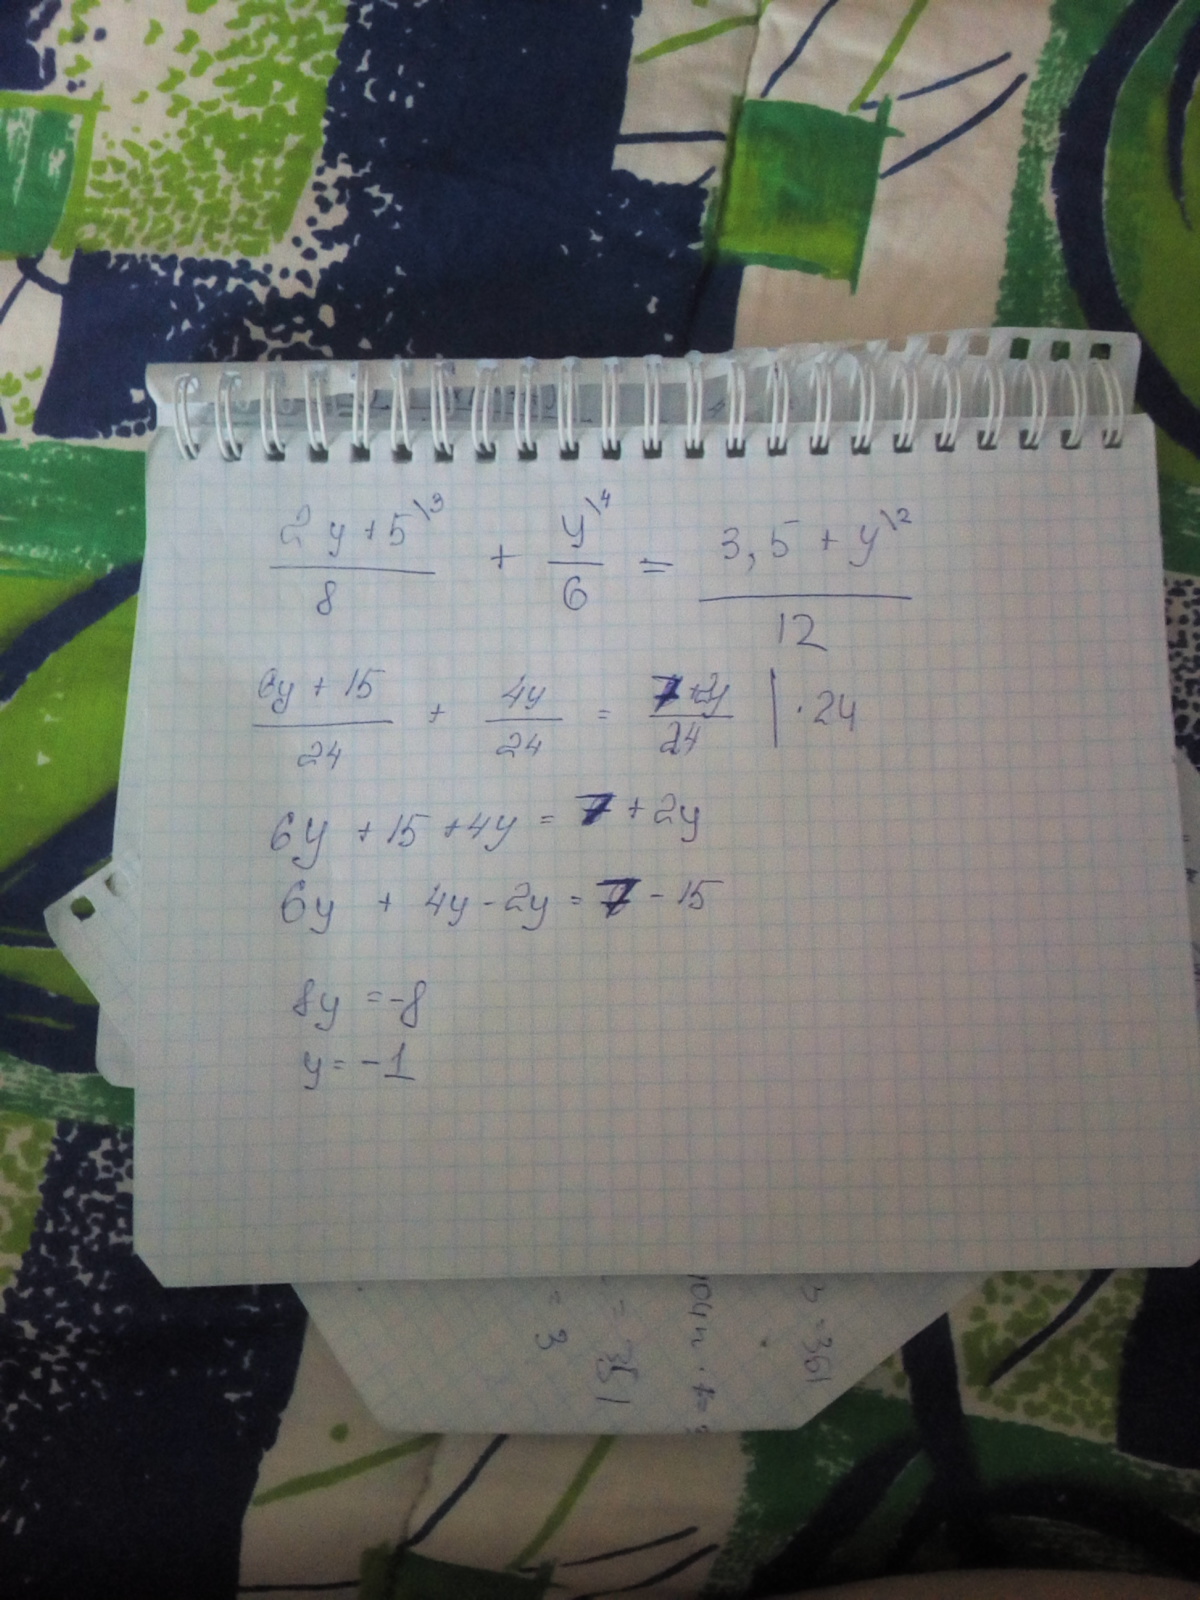 2y+5\3 / 8 + y\4 / 6 = 3,5 + y\2 / 12
6y + 15 / 24 + 4y / 24 = 7+2y / 24 | · 24
6y + 15 + 4y = 7 + 2y
6y + 4y - 2y = 7 - 15
8y = -8
y = -1
= 3
= 351
= 361